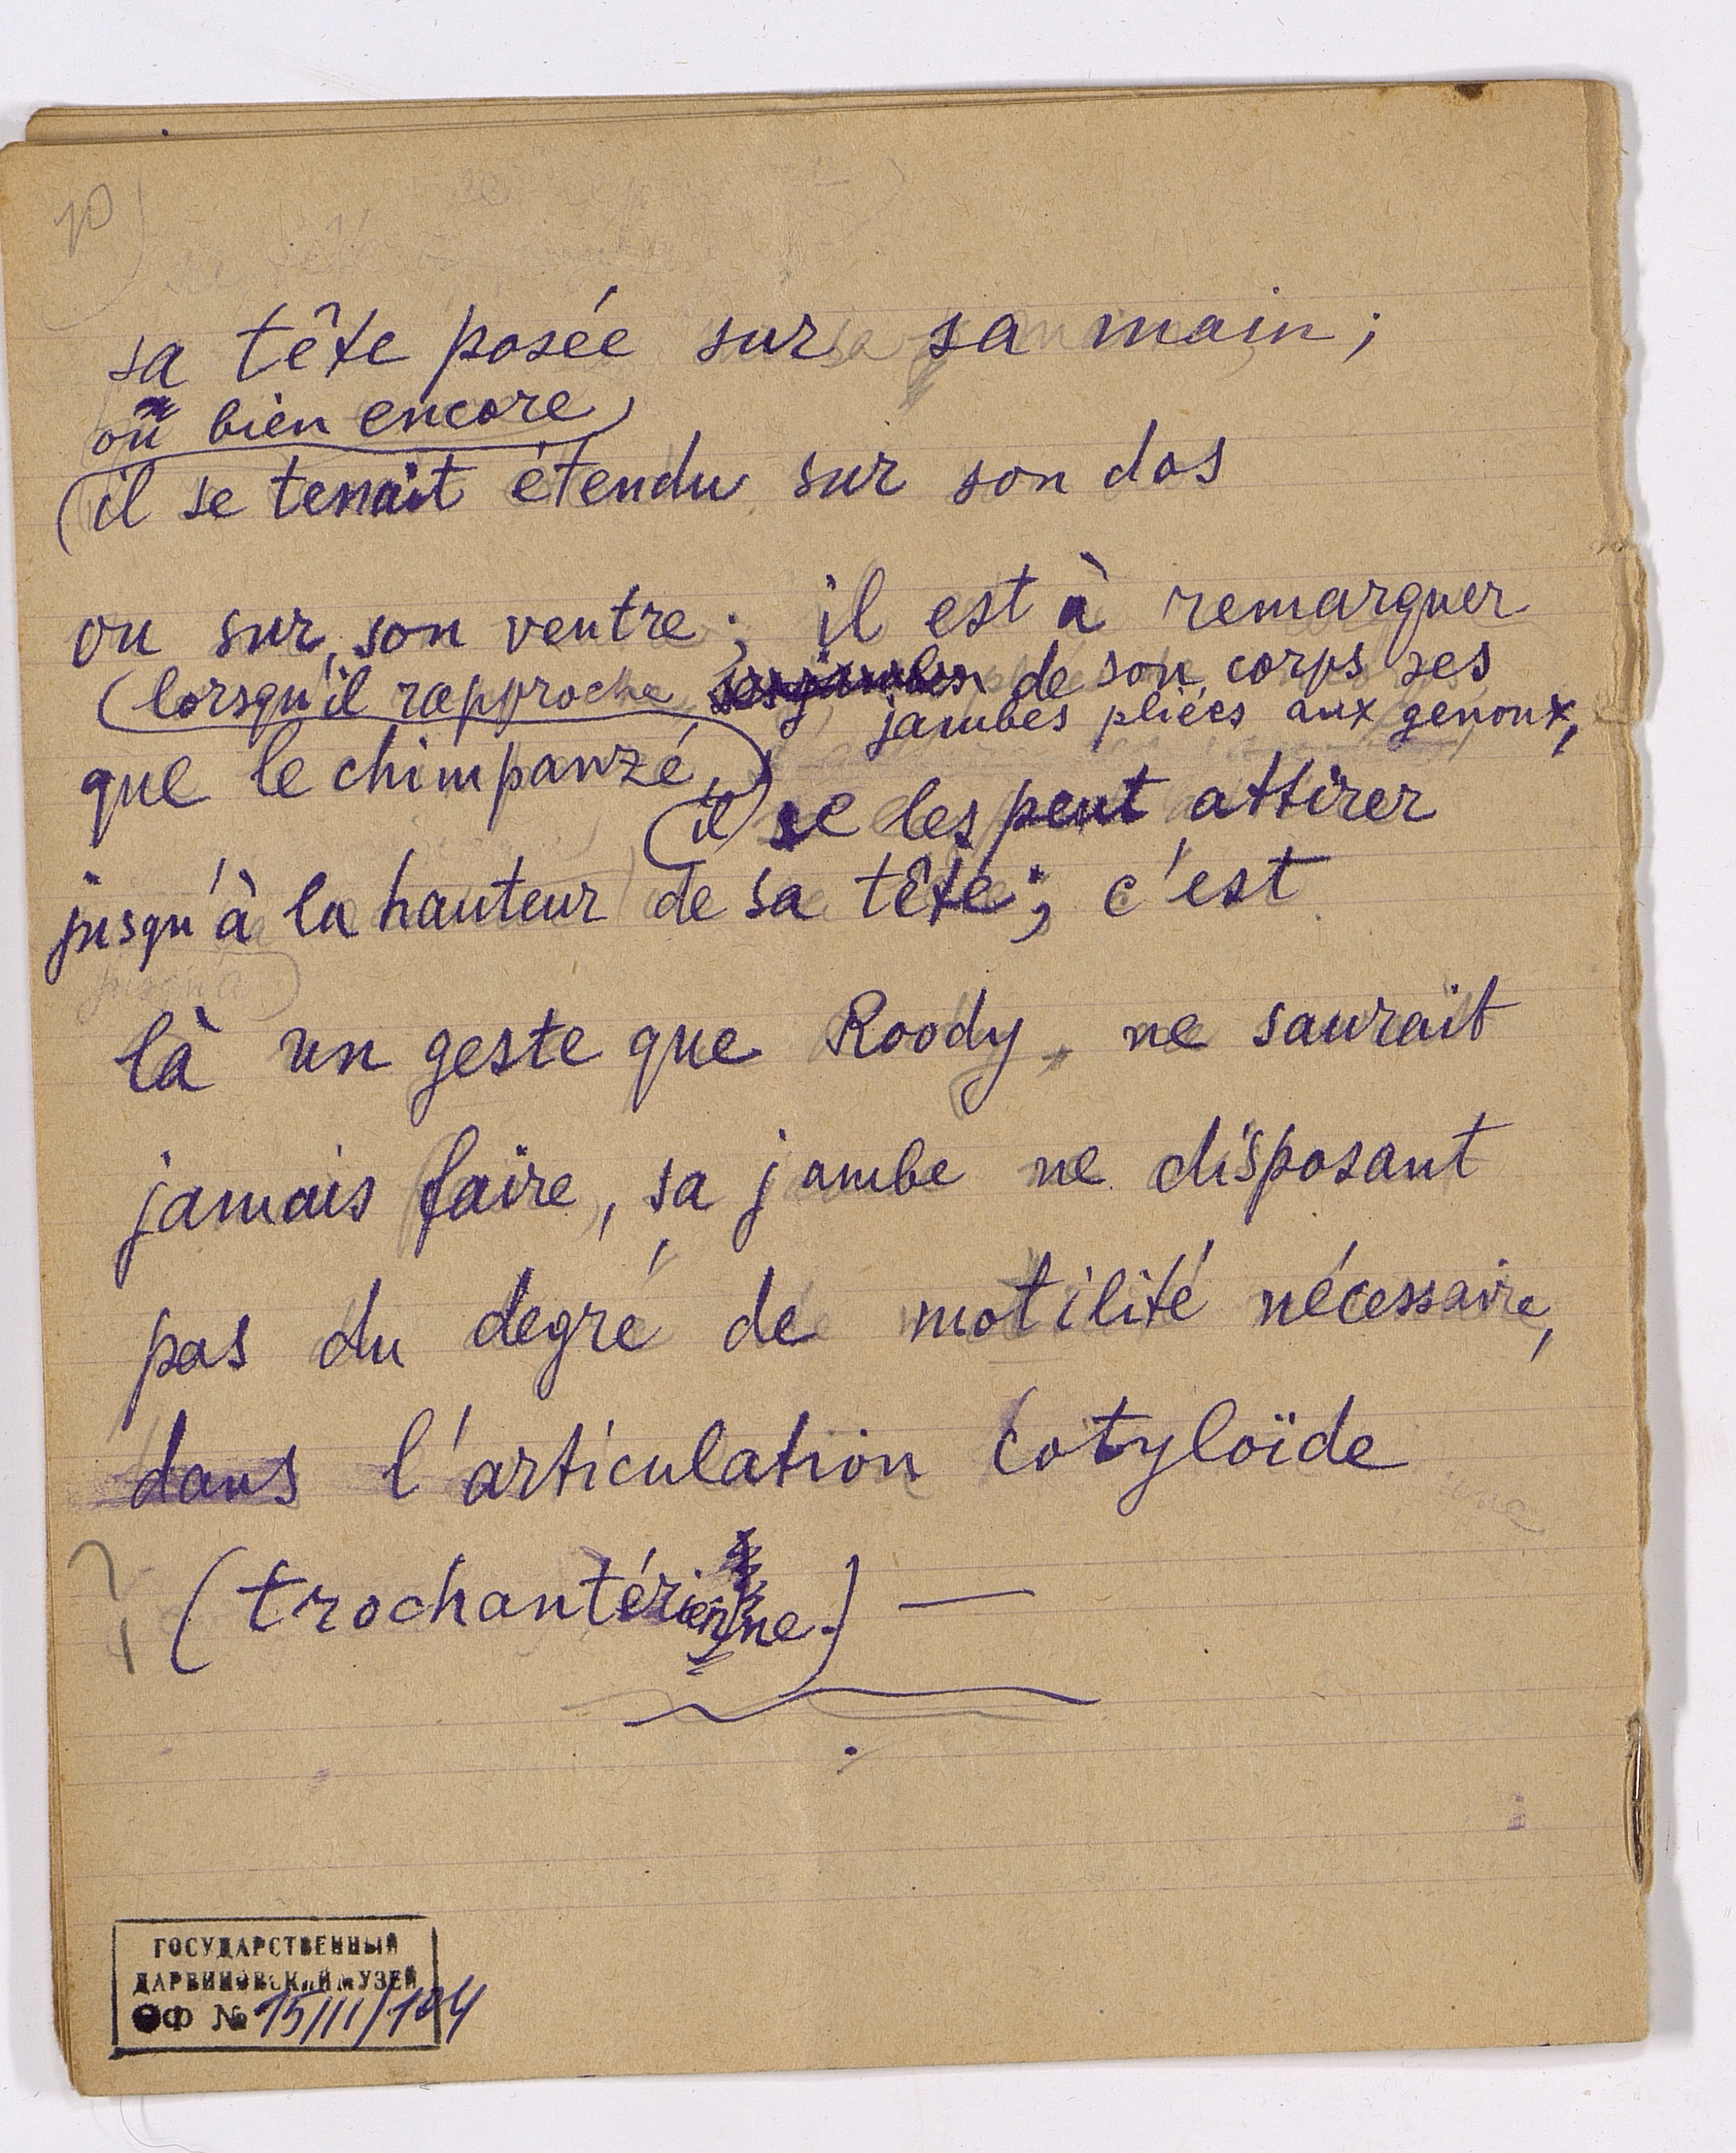 10)
sa tête posée sur sa main;
ou bien encore
(il se tenait étendu sur son dos
ou sur son ventre; il est à remarquer
(lorsqu'il rapproche ses jambes de son corps ses
jambes pliées aux genoux,
que le chimpanzé,
(il) se les peut attirer
jusqu'à la hauteur de sa tête; c'est
jusqu'à)
là un geste que Roody ne saurait
jamais faire, sa jambe ne disposant
pas du degré de motilité nécessaire,
dans l'articulation cotyloïde
(trochantérienne.) —
ГОСУДАРСТВЕННЫЙ
ДАРВИНОВСКИЙ МУЗЕЙ
ОФ № 15111/104